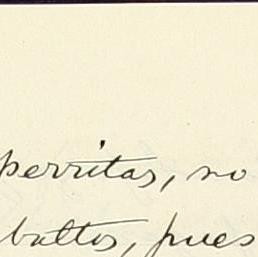 perritas, no
bultos, pues